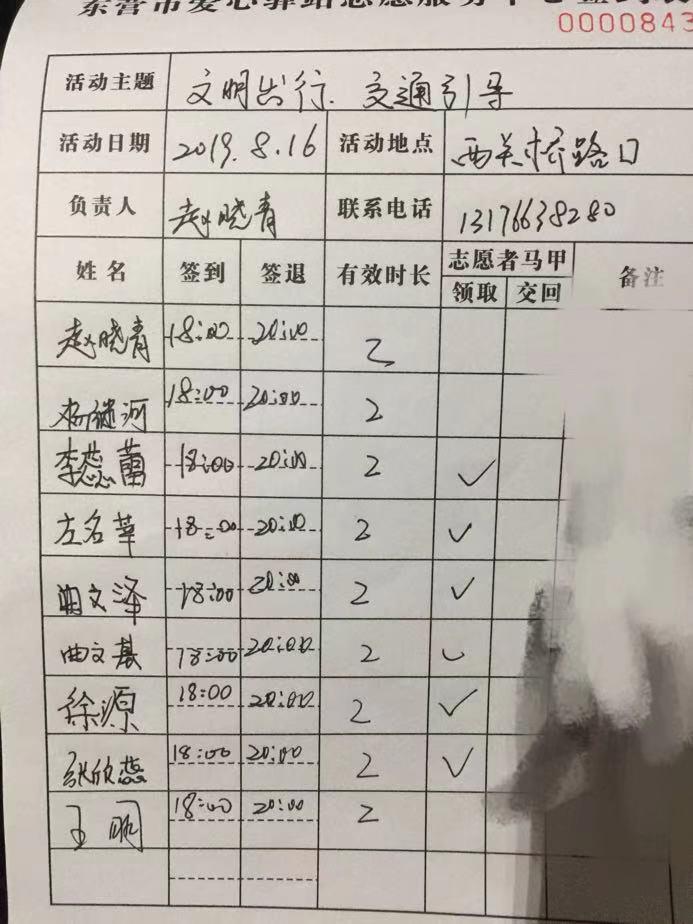 东营市爱心驿站志愿服务中心签到表
0000843
活动主题 文明出行、交通引导
活动日期 2019.8.16 活动地点 西关桥路口
负责人 赵晓青 联系电话 13176638280
姓名 签到 签退 有效时长 志愿者马甲 备注
领取 交回
赵晓青 18:00 20:00 2
杨继河 18:00 20:00 2
李蕊蕾 18:00 20:00 2 ✓
左名苹 18:00 20:00 2 ✓
曲文泽 18:00 20:00 2 ✓
曲文基 18:00 20:00 2 ✓
徐源 18:00 20:00 2 ✓
张欣蕊 18:00 20:00 2 ✓
王明 18:00 20:00 2